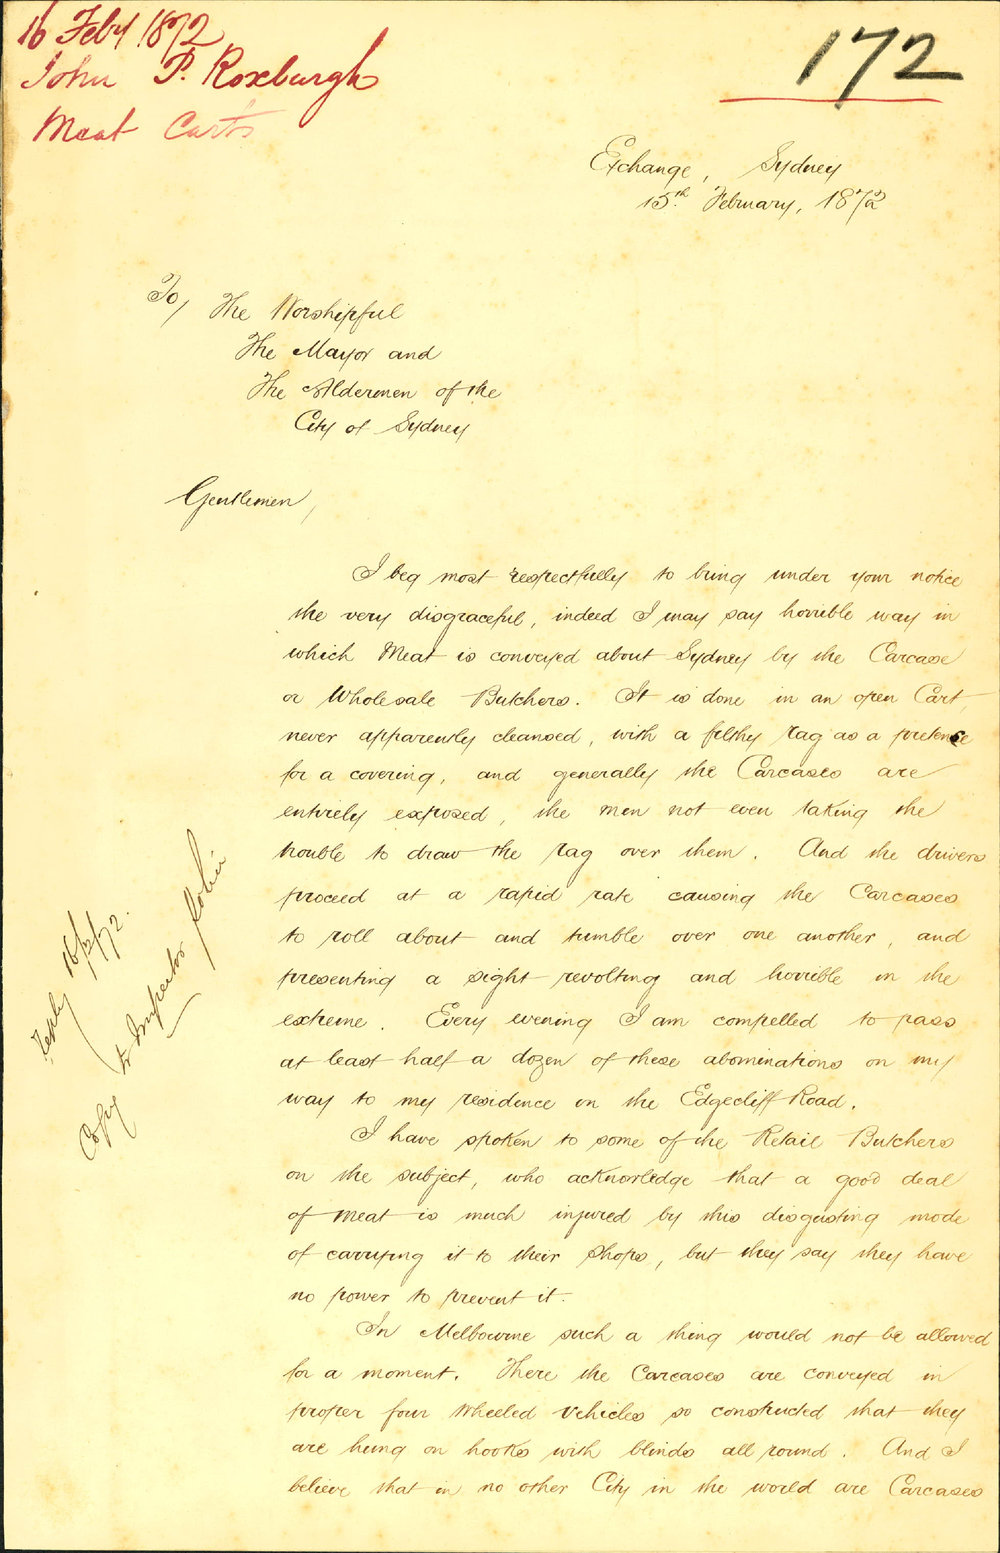 16 Feby 1872
John P. Roxburgh
Meat Carts
172
Exchange, Sydney
15th February, 1872
To/ The Worshipful
The Mayor and
The Aldermen of the
City of Sydney
Gentlemen,
I beg most respectfully to bring under your notice
the very disgraceful, indeed I may say horrible way in
which Meat is conveyed about Sydney by the Carcase
or Wholesale Butchers. It is done in an open Cart,
never apparently cleansed, with a filthy rag as a pretence
for a covering, and generally the Carcases are
entirely exposed, the men not even taking the
trouble to draw the rag over them. And the drivers
proceed at a rapid rate causing the Carcases
to roll about and tumble over one another, and
presenting a sight revolting and horrible in the
extreme. Every evening I am compelled to pass
at least half a dozen of these abominations on my
way to my residence in the Edgecliff Road.
I have spoken to some of the Retail Butchers
on the subject, who acknowledge that a good deal
of Meat is much injured by this disgusting mode
of carrying it to their Shops, but they say they have
no power to prevent it.
In Melbourne such a thing would not be allowed
for a moment. There the Carcases are conveyed in
proper four Wheeled Vehicles so constructed that they
are hung on hooks with blinds all round. And I
believe that in no other City in the world are Carcases
Reply 16/2/72.
Copy to Inspector